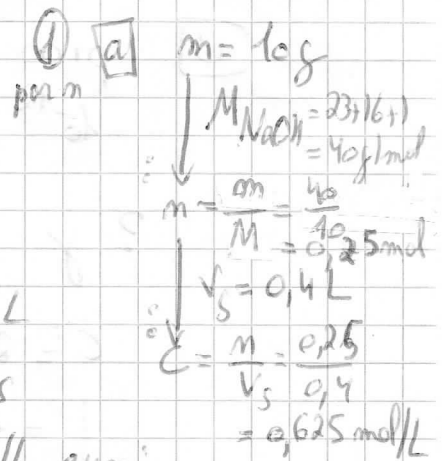 ① a m = 10g
par n
M NaOH = 23+16+1
= 40g/mol
n = m/M = 40/40
= 0,25mol
Vs = 0,4 L
L
C = n/Vs = 0,25/0,4
s
= 0,625 mol/L